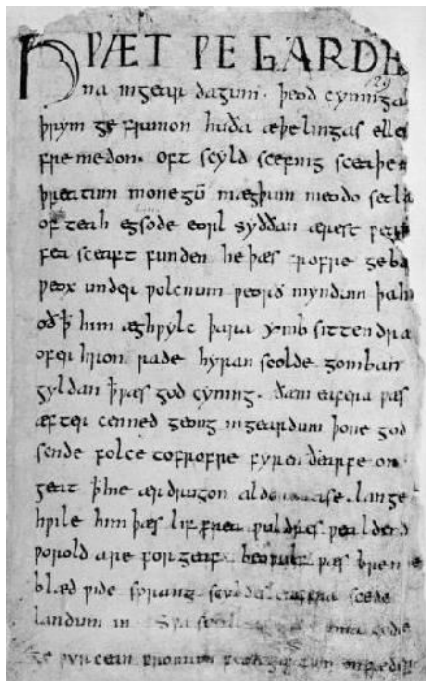 HǷÆT ǷE GARDE
129
na ingear dagum. þeod cyninga
þrym ge frunon huða æþelingas elle
fremedon. oft scyld scefing sceaþe
þreatum monegū mægþum meodo setla
of teah egsode eorl syððan ærest ƿear
fea sceaft funden he þæs frofre geba
ƿeox under ƿolcnum ƿeorð myndum þah
oð ꝥ him æghƿylc þara ymb sittendra
ofer hron rade hyran scolde gomban
gyldan ꝥ ƿæs god cyning. ðam eafera ƿæs
æfter cenned geong ingeardum þone god
sende folce tofrofre fyren ðearfe on
geat ꝥ ær drugon lange
hƿile him þæs lif frea ƿuldres ƿealdend
ƿorold are for geaf. beoƿulf ƿæs breme
blæd ƿide sprang scyldes eafera scede
landum in Sƿa gode
ge ƿyrcean fromum